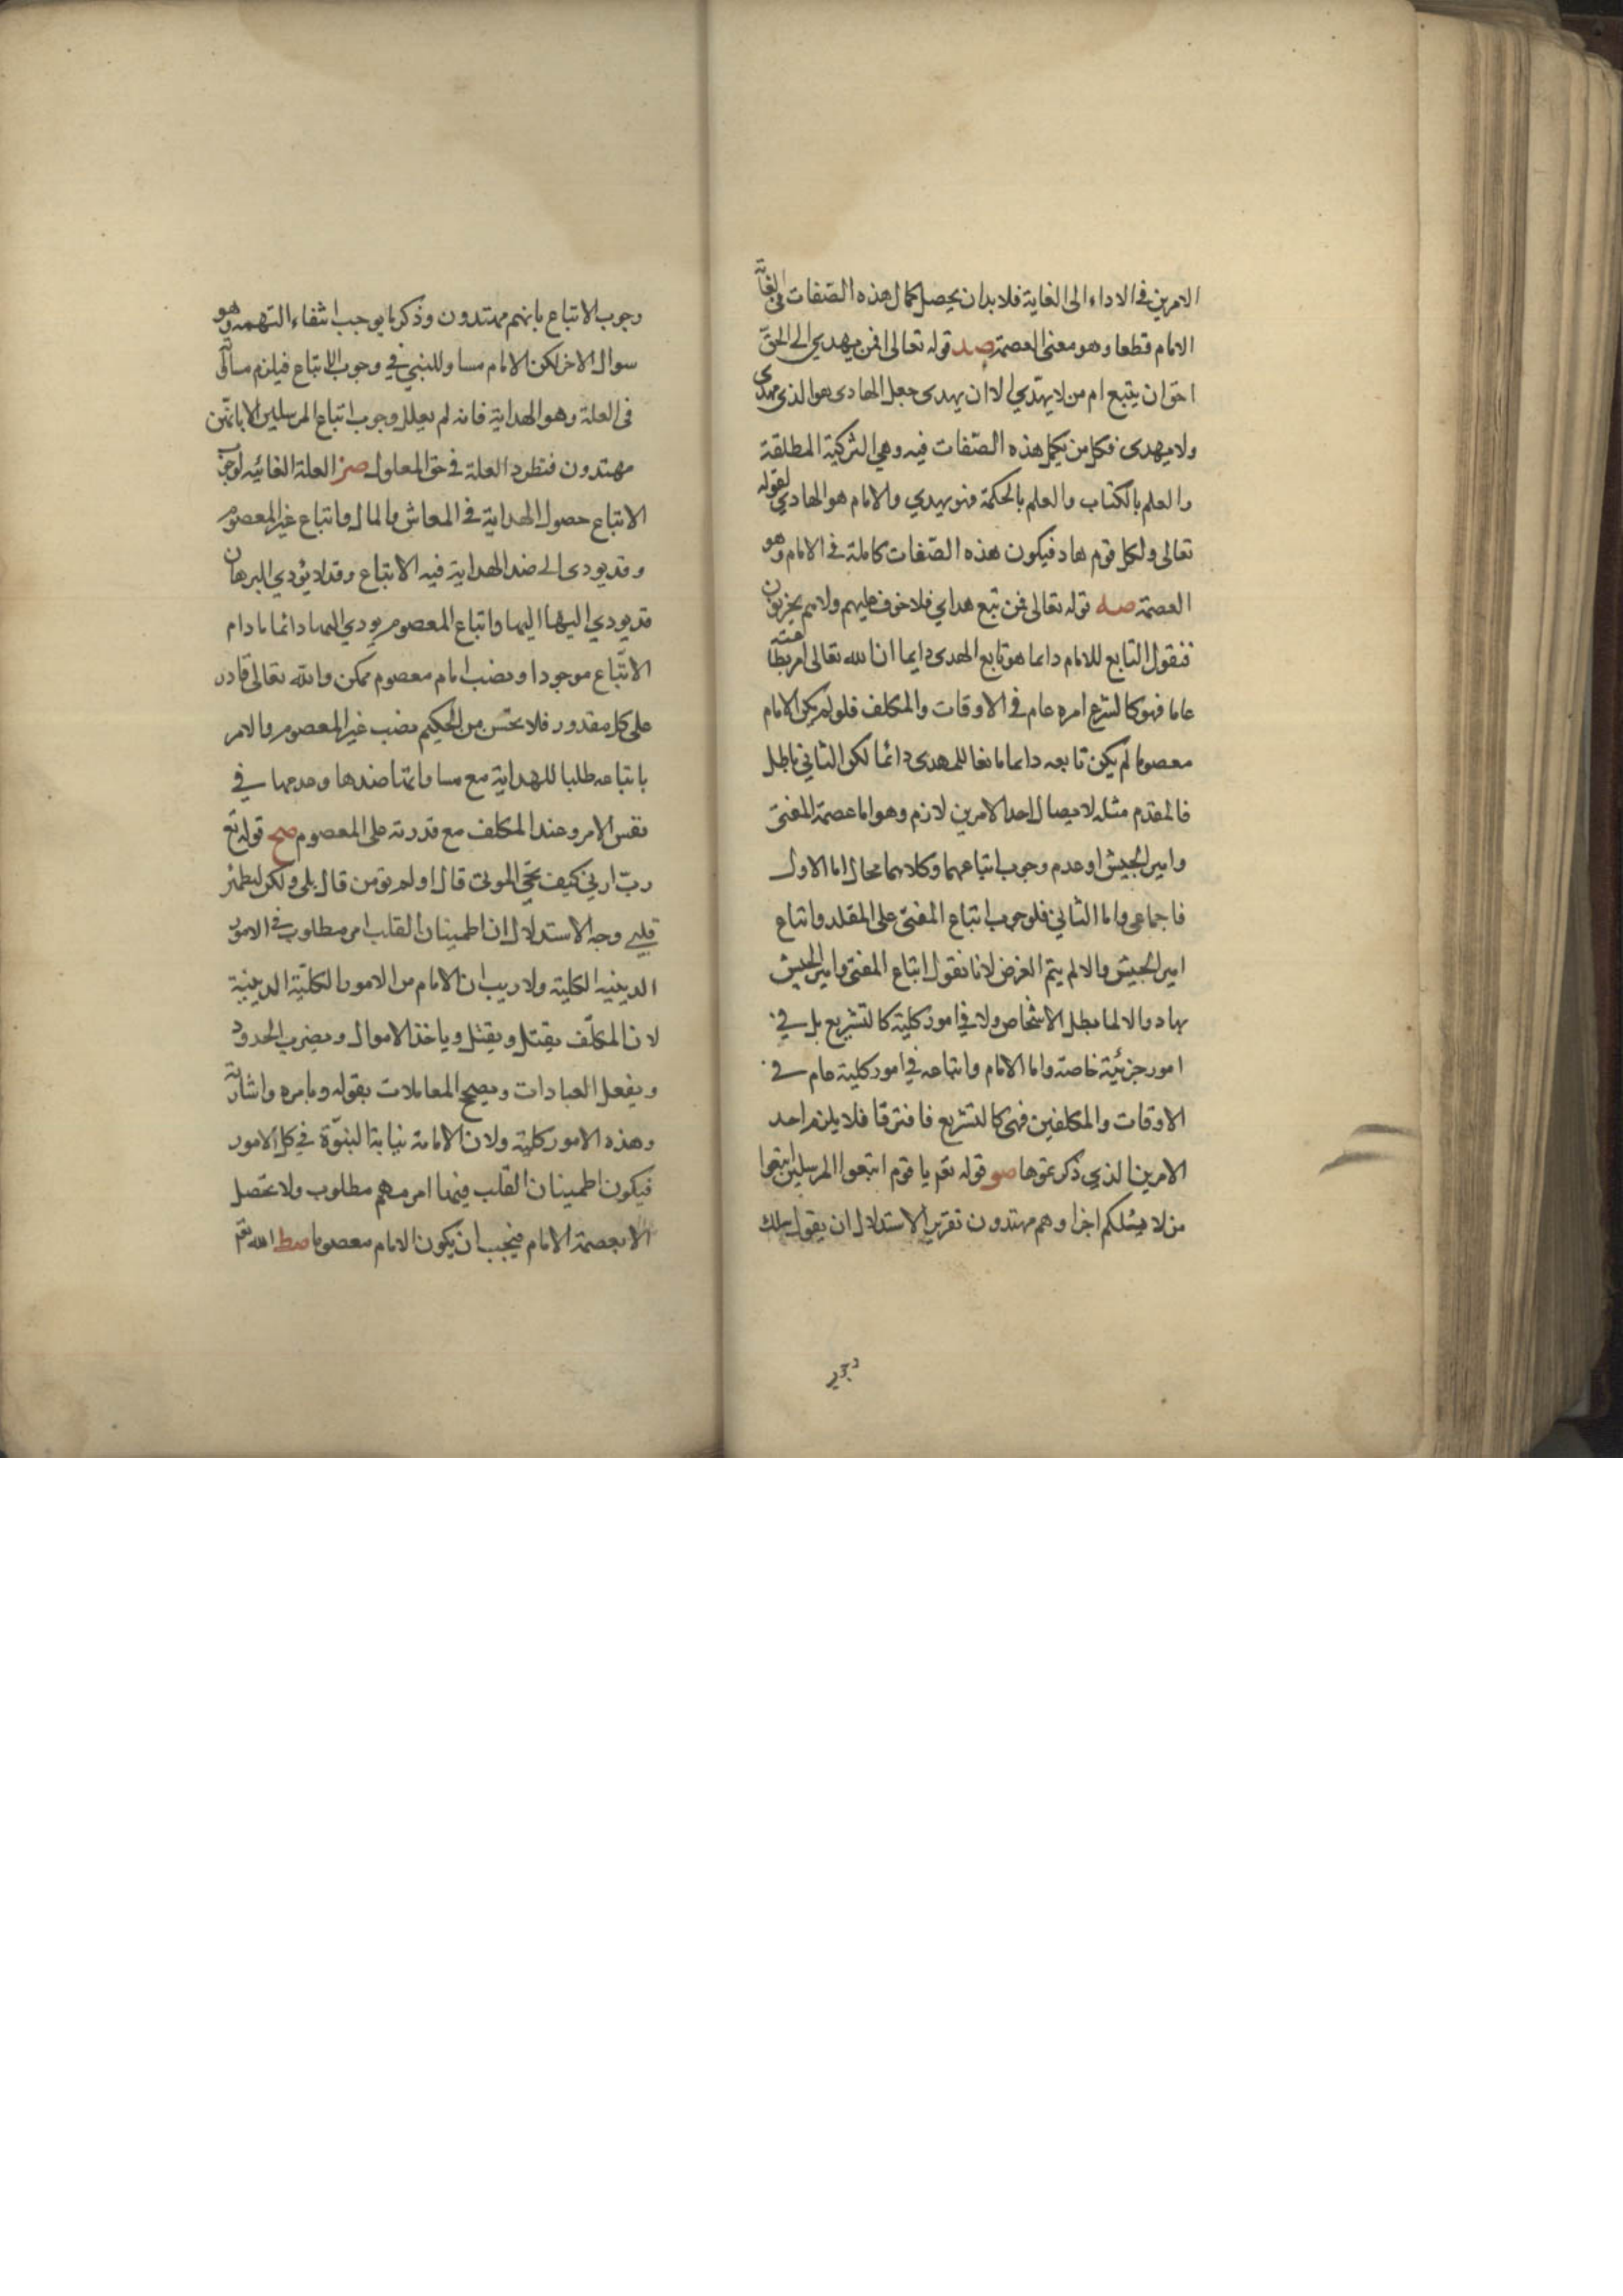 الامرين في الاداء الى الغاية فلا بد ان يحصل كمال هذه الصفات في
الامام قطعا وهو معنى العصمة صد قوله تعالى افمن يهدي الى الحق
احق ان يتبع ام من لا يهتدي الا ان يهدى جعل الهادى هو الذى يهدى
ولا يهدى فكل من يكمل هذه الصفات فيه وهي التزكية المطلقة
والعلم بالكتاب والعلم بالحكمة فهو يهدي والامام هو الهادي لقوله
تعالى ولكل قوم هاد فيكون هذه الصفات كاملة في الامام وهو
العصمة صه قوله تعالى فمن تبع هداي فلا خوف عليهم ولا هم يحزنون
فنقول التابع للامام دايما هو تابع الهدى دايما ان الله تعالى امر بطاعته
عاما فهو كالشرع امره عام في الاوقات والمكلف فلو لم يكن الامام
معصوما لم يكن تابعه دايما تابعا للهدى دائما لكن الثاني باطل
فالمقدم مثله لا يقال احد الامرين لازم وهو اما عصمة المفتى
وامير الجيش او عدم وجوب اتباعهما وكلاهما محال اما الاول
فاجماعى واما الثاني فلوجوب اتباع المفتى على المقلد واتباع
امير الجيش والا لم يتم الغرض لانا نقول اتباع المفتى وامير الجيش
بهاد والا لما بطل الاشخاص ولا في امور كلية كالتشريع بل في
امور جزئية خاصة واما الامام واتباعه في امور كلية عام في
الاوقات والمكلفين فهى كالتشريع فافترقا فلا يلزم احد
الامرين الذي ذكرتموها صو قوله تعم يا قوم اتبعوا المرسلين اتبعوا
من لا يسئلكم اجرا وهم مهتدون تقرير الاستدلال ان يقول علل
وجوب الاتباع بانهم مهتدون وذكر ما يوجب انتفاء التهمة وهو
سوال الاخر لكن الامام مساو للنبي في وجوب الاتباع فيلزم
فى العلة وهو الهداية فانه لم يعلل وجوب اتباع المرسلين الا بانهم
مهتدون فتطرد العلة في حق المعلول صز العلة الغائيه لوجوب
الاتباع حصول الهداية في المعاش والمال واتباع غير المعصوم
وقد يودى الى ضد الهداية فيه الاتباع وقد لا يؤدي البرهان
قد يودي اليها اليها واتباع المعصوم يودي اليها دائما ما دام
الاتباع موجودا ونصب امام معصوم ممكن والله تعالى قادر
على كل مقدور فلا يحسن من الحكيم نصب غير المعصوم والامر
باتباعه طلبا للهداية مع مساواتها ضدها وعدمها في
نفس الامر وعند المكلف مع قدرته على المعصوم صح قوله تع
رب ارني كيف تحي الموتى قال اولم تؤمن قال بلى ولكن ليطمئن
قلبي وجه الاستدلال ان اطمينان القلب امر مطلوب في الامور
الدينيه الكلية ولا ريب ان الامام من الامور الكلية الدينية
لان المكلف يقتل ويقتل وياخذ الاموال ويضرب الحدود
ويفعل العبادات ويصح المعاملات بقوله وبامره واشارته
وهذه الامور كلية ولان الامامة نيابة النبوة في كل الامور
فيكون اطمينان القلب فيها امر مهم مطلوب ولا تحصل
الا بعصمة الامام فيجب ان يكون الامام معصوما صط الله تعم